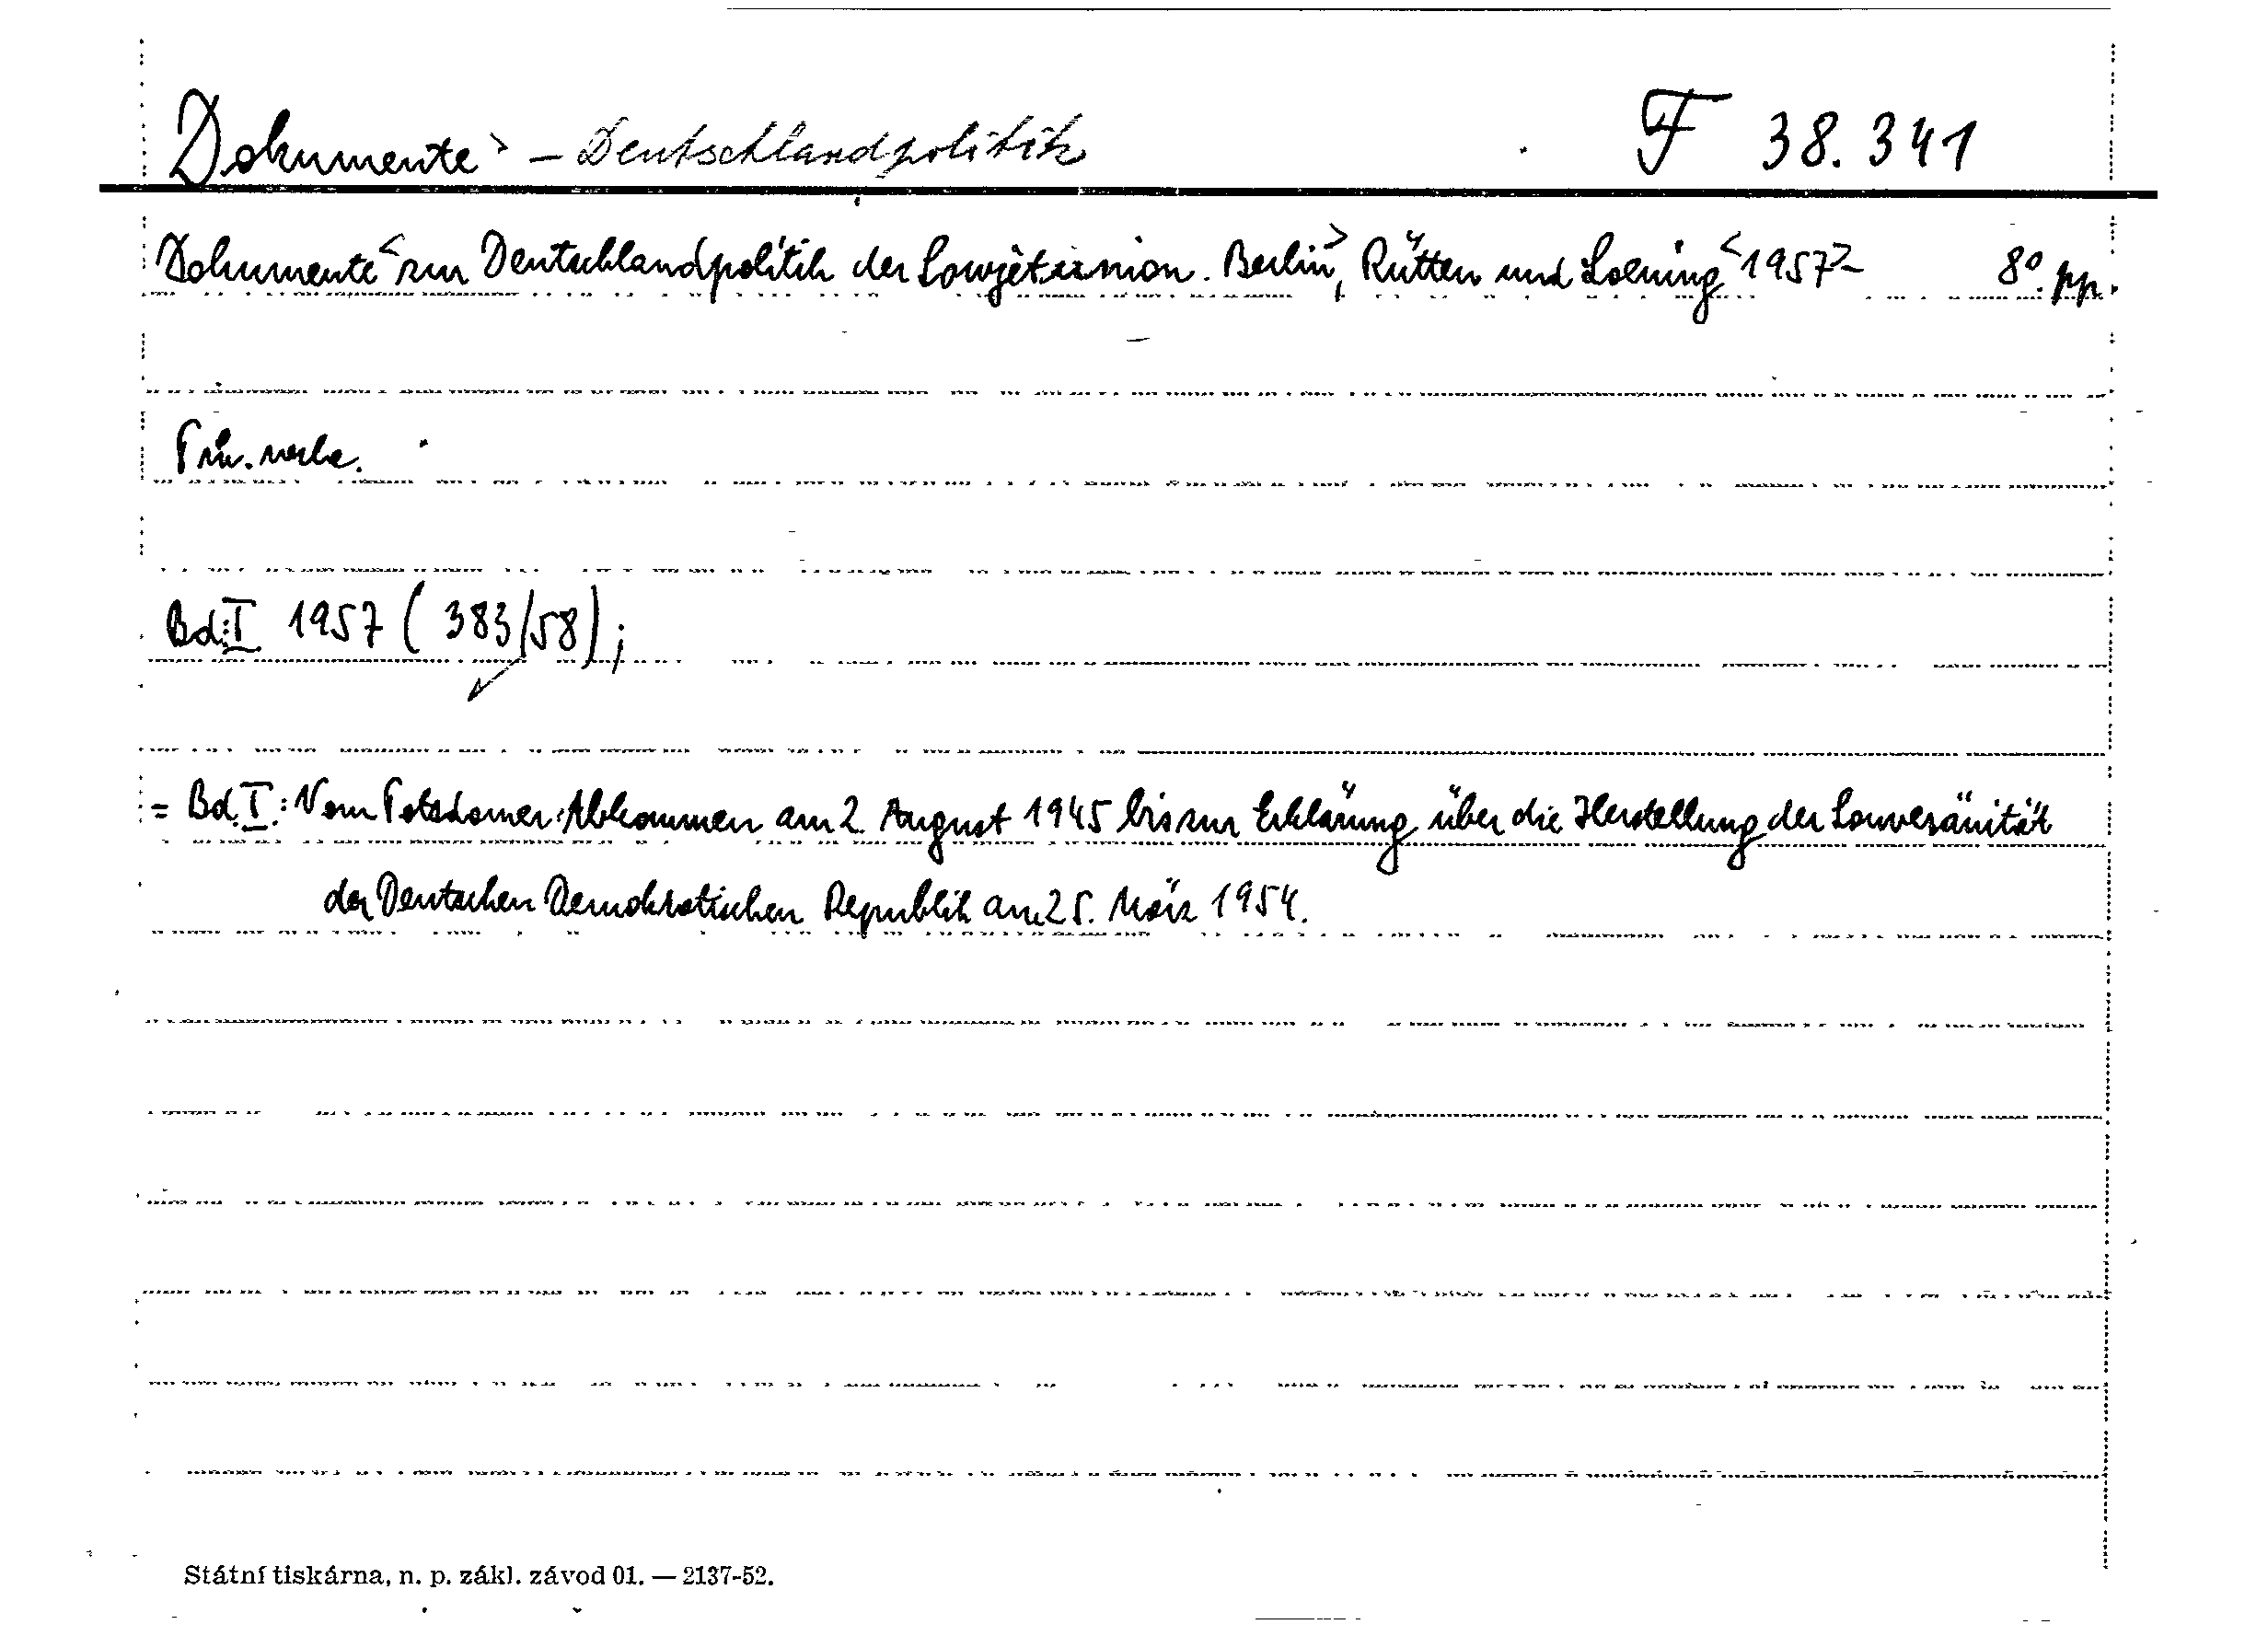 Dokumente> – Deutschlandpolitik F 38.341
Dokumente< zur Deutschlandpolitik der Sowjetunion. Berlin>, Rütten und Loening< 1957- 8º. pp.
Bd. I 1957 (383/58);
= Bd. I.: Vom Potsdamer Abkommen am 2. August 1945 bis zur Erklärung über die Herstellung der Souveränität
der Deutschen Demokratischen Republik am 25. März 1954.
Státní tiskárna, n. p. zákl. závod 01. — 2137-52.